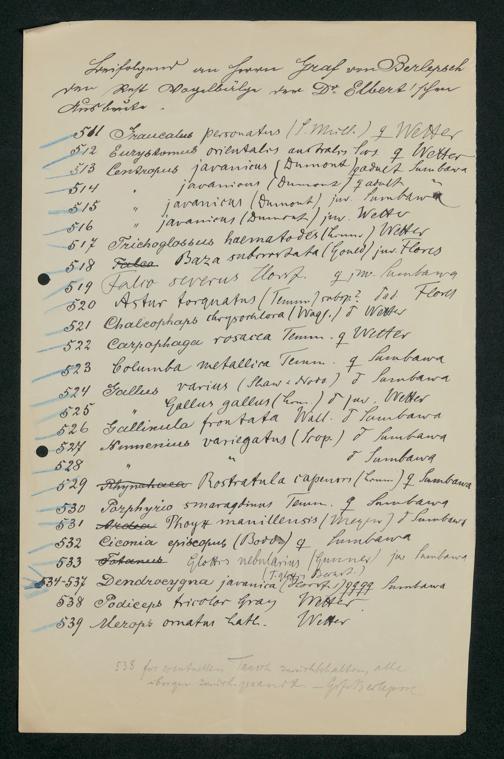 Beifolgend an Herrn Graf von Berlepsch
den Rest Vogelbälge der Dr. Elbert'schen
Ausbeute.
511 Graucalus personatus (S. Müll.) ♀ Wetter
512 Eurystomus orientalis australis Sws ♀ Wetter
513 Centropus javanicus (Dumont) ♀ adult Sumbawa
514 " javanicus (Dumont) ♀ adult "
515 " javanicus (Dumont) juv. Sumbawa
516 " javanicus (Dumont) juv. Wetter
517 Trichoglossus haematodes (Linn.) Wetter
518 Falco Baza subcristata (Gould) juv. Flores
519 Falco severus Horsf. ♀ juv. Sumbawa
520 Astur torquatus (Temm.) subsp.? ♂ ad Flores
521 Chalcophaps chrysochlora (Wagl.) ♂ Wetter
522 Carpophaga rosacea Temm. ♀ Wetter
523 Columba metallica Temm. ♀ Sumbawa
524 Gallus varius (Shaw & Nodd) ♂ Sumbawa
525 " Gallus gallus (Linn.) ♂ juv. Wetter
526 Gallinula frontata Wall. ♂ Sumbawa
527 Numenius variegatus (Scop.) ♂ Sumbawa
528 " " ♂ Sumbawa
529 Rhynchaea Rostratula capensis (Linn.) ♀ Sumbawa
530 Porphyrio smaragdinus Temm. ♀ Sumbawa
531 Ardea Phoyx manillensis (Meyen) ♂ Sumbawa
532 Ciconia episcopus (Bodd) ♀ Sumbawa
533 Totanus Glottis nebularius (Gunner) juv Sumbawa
534-537 Dendrocygna javanica (Horsf.) ♀♀♀♀ Sumbawa
538 Podiceps tricolor Gray Wetter
539 Merops ornatus Lath. Wetter
538 für eventuellen Tausch zurückbehalten, alle
übrigen zurückgesandt — Graf Berlepsch